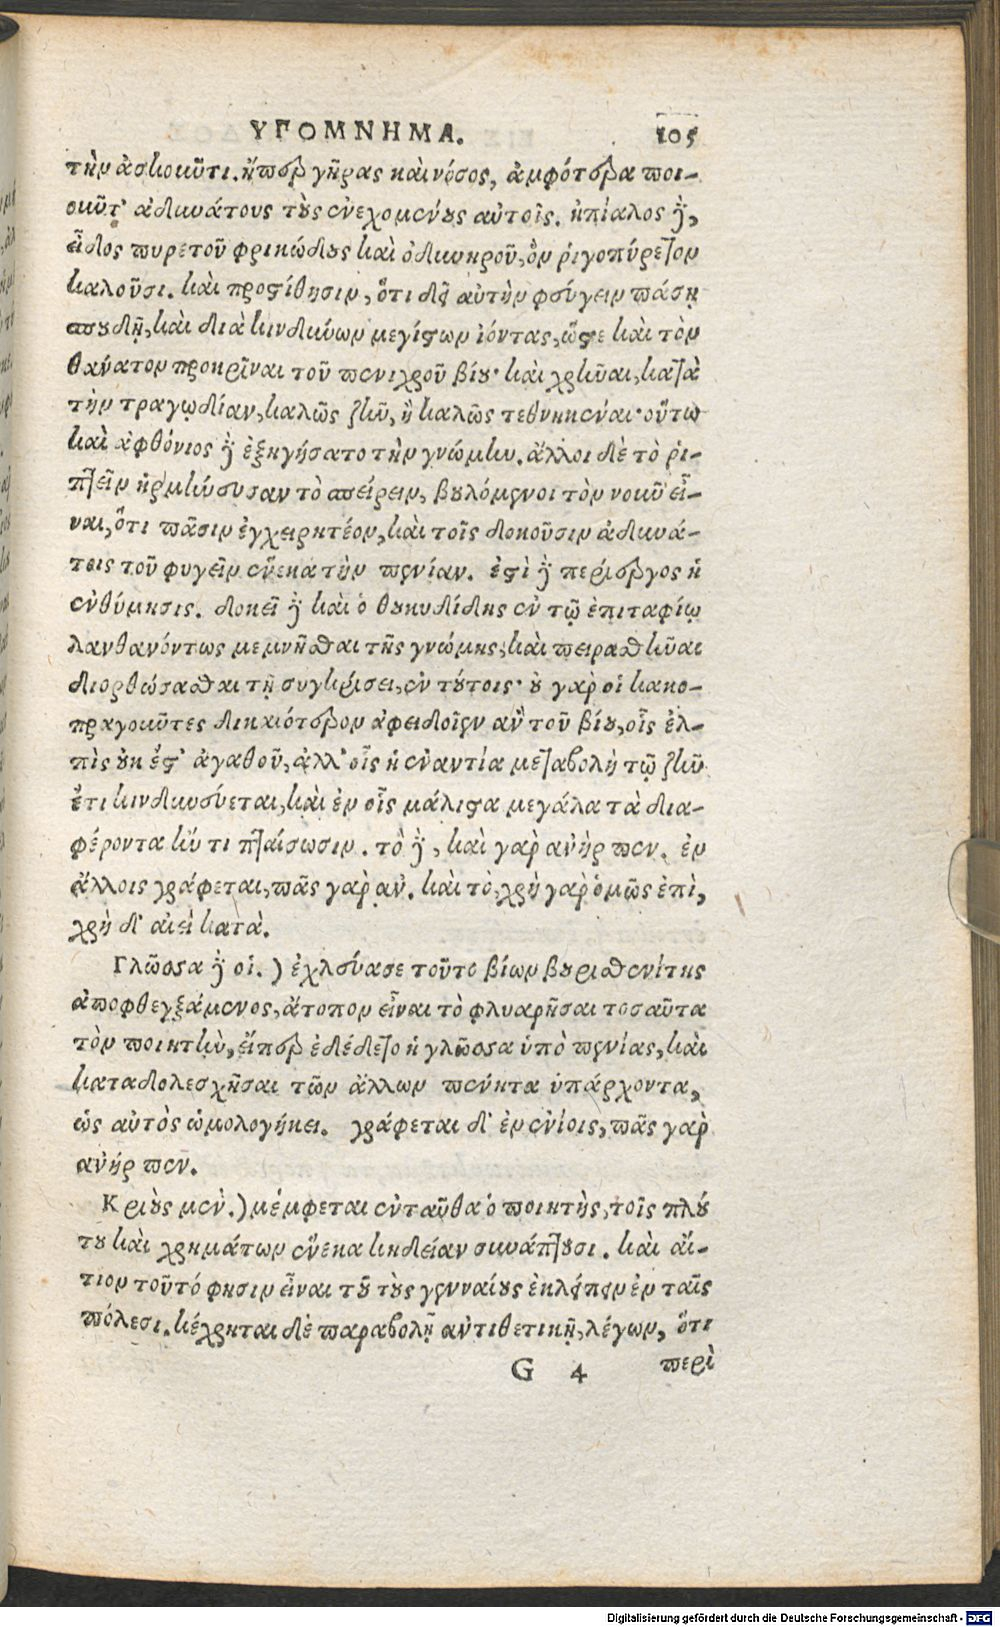 ΥΠΟΜΝΗΜΑ. 105
τὴν ἀσκοῦντι. ἤπερ γῆρας καὶ νόσος, ἀμφότερα ποι-
οῦντ' ἀδυνάτους τοὺς συνεχομένους αὐτοῖς. ἠπίαλος δὲ,
εἶδος πυρετοῦ φρικώδους καὶ ὀδυνηροῦ, ὃν ῥιγοπύρετον
καλοῦσι. καὶ προστίθησιν, ὅτι δεῖ αὐτὴν φεύγειν πάσῃ
σπουδῇ, καὶ διὰ κινδύνων μεγίστων ἰόντας, ὥστε καὶ τὸν
θάνατον προκρῖναι τοῦ πενιχροῦ βίου· καὶ χρῆναι, κατὰ
τὴν τραγῳδίαν, καλῶς ζῆν, ἢ καλῶς τεθνηκέναι· οὕτω
καὶ ἀφθόνιος δὲ ἐξηγήσατο τὴν γνώμην. ἄλλοι δὲ τὸ ῥι-
πτεῖν ἡρμήνευσαν τὸ σπείρειν, βουλόμενοι τὸν νοῦν εἶ-
ναι, ὅτι πᾶσιν ἐγχειρητέον, καὶ τοῖς δοκοῦσιν ἀδυνά-
τοις τοῦ φυγεῖν ἕνεκα τὴν πενίαν. ἐστὶ δὲ περίεργος ἡ
ἐνθύμησις. δοκεῖ δὲ καὶ ὁ θουκυδίδης ἐν τῷ ἐπιταφίῳ
λανθανόντως μεμνῆσθαι τῆς γνώμης, καὶ πειρασθῆναι
διορθώσασθαι τῇ συγκρίσει, ἐν τούτοις· οὐ γὰρ οἱ κακο-
πραγοῦντες δικαιότερον ἀφειδοῖεν ἂν τοῦ βίου, οἷς ἐλ-
πὶς οὐκ ἔστ' ἀγαθοῦ, ἀλλ' οἷς ἡ ἐναντία μεταβολὴ τῷ ζῆν
ἔτι κινδυνεύεται, καὶ ἐν οἷς μάλιστα μεγάλα τὰ δια-
φέροντα ἤν τι πταίσωσιν. τὸ δὲ, καὶ γὰρ ἀνὴρ πεν. ἐν
ἄλλοις γράφεται, πᾶς γὰρ ἀν. καὶ τὸ, χρὴ γὰρ ὁμῶς ἐπὶ,
χρὴ δ' αἰεὶ κατὰ.
Γλῶσσα δὲ οἱ.) ἐχλεύασε τοῦτο βίων βορυσθενίτης
ἀποφθεγξάμενος, ἄτοπον εἶναι τὸ φλυαρῆσαι τοσαῦτα
τὸν ποιητὴν, εἴπερ ἐδέδετο ἡ γλῶσσα ὑπὸ πενίας, καὶ
καταδολεσχῆσαι τῶν ἄλλων πένητα ὑπάρχοντα,
ὡς αὐτὸς ὡμολογήκει. γράφεται δ' ἐν ἐνίοις, πᾶς γὰρ
ἀνὴρ πεν.
Κριοὺς μὲν.) μέμφεται ἐνταῦθα ὁ ποιητὴς, τοῖς πλού
του καὶ χρημάτων ἕνεκα κηδείαν συνάπτουσι. καὶ αἴ-
τιον τοῦτό φησιν εἶναι τοῦ τοὺς γενναίους ἐκλείπειν ἐν ταῖς
πόλεσι. κέχρηται δὲ παραβολῇ ἀντιθετικῇ, λέγων, ὅτι
G 4 περὶ
Digitalisierung gefördert durch die Deutsche Forschungsgemeinschaft - DFG